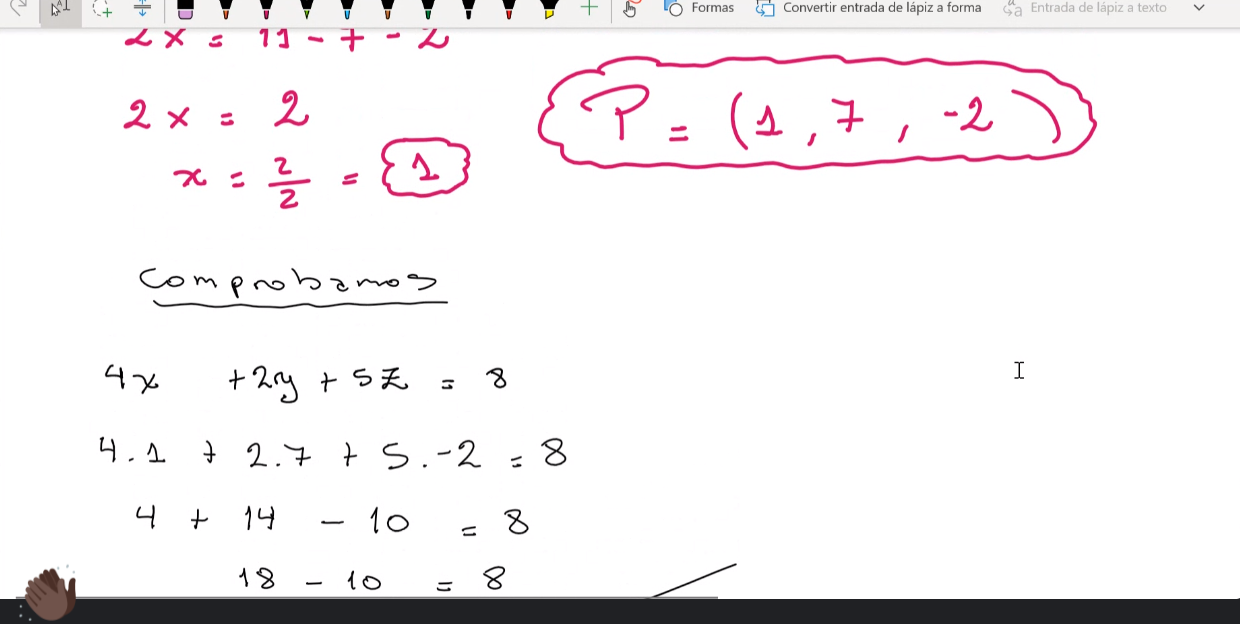 Formas Convertir entrada de lápiz a forma Entrada de lápiz a texto
2x = 11 - 7 - 2
2x = 2
x = 2/2 = 1
P = (1, 7, -2)
Comprobamos
4x +2y + 5z = 8
4.1 + 2.7 + 5.-2 = 8
4 + 14 - 10 = 8
18 - 10 = 8